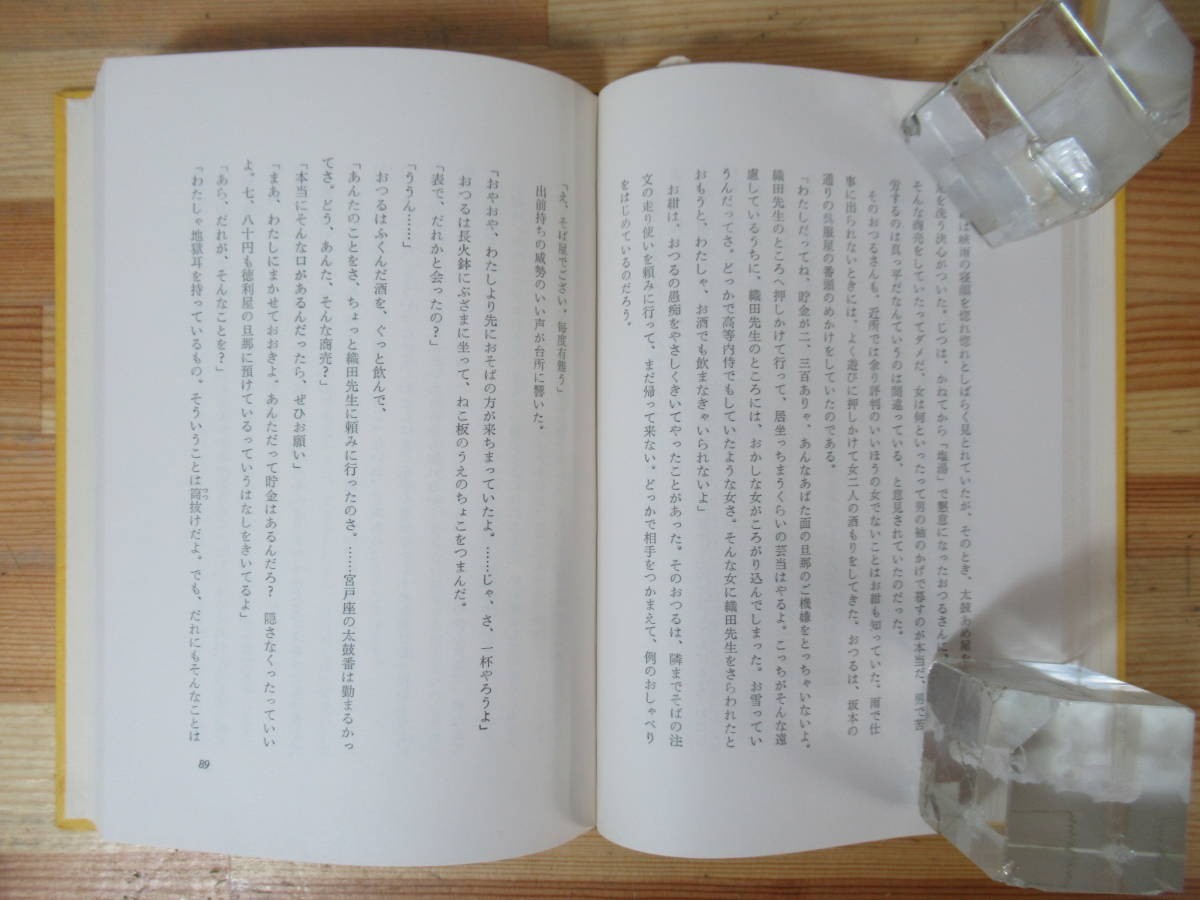 は峡雨の寝顔を惚れ惚れとしばらく見とれていたが、そのとき、太鼓あめ屋
を洗う決心がついた。じつは、かねてから「塩湯」で懇意になったおつるさんに、
そんな商売をしていたってダメだ、女は何といったって男の袖のかげで暮すのが本当だ、男で苦
労するのは真っ平だなんていうのは間違っている、と意見されていたのだった。
そのおつるさんも、近所では余り評判のいいほうの女でないことはお紺も知っていた。雨で仕
事に出られないときには、よく遊びに押しかけて女二人の酒もりをしてきた。おつるは、坂本の
通りの呉服屋の番頭のめかけをしていたのである。
「わたしだってね、貯金が二、三百ありゃ、あんなあばた面の旦那のご機嫌をとっちゃいないよ。
織田先生のところへ押しかけて行って、居坐っちまうくらいの芸当はやるよ。こっちがそんな遠
慮しているうちに、織田先生のところには、おかしな女がころがり込んでしまった。お雪ってい
うんだってさ。どっかで高等内侍でもしていたような女さ。そんな女に織田先生をさらわれたと
おもうと、わたしゃ、お酒でも飲まなきゃいられないよ」
お紺は、おつるの愚痴をやさしくきいてやったことがあった。そのおつるは、隣までそばの注
文の走り使いを頼みに行って、まだ帰って来ない。どっかで相手をつかまえて、例のおしゃべり
をはじめているのだろう。
「え、そば屋でござい、毎度有難う」
出前持ちの威勢のいい声が台所に響いた。
「おやおや、わたしより先におそばの方が来ちまっていたよ。……じゃ、さ、一杯やろうよ」
おつるは長火鉢にぶざまに坐って、ねこ板のうえのちょこをつまんだ。
「表で、だれかと会ったの？」
「ううん……」
おつるはふくんだ酒を、ぐっと飲んで、
「あんたのことをさ、ちょっと織田先生に頼みに行ったのさ。……宮戸座の太鼓番は勤まるかっ
てさ。どう、あんた、そんな商売？」
「本当にそんな口があるんだったら、ぜひお願い」
「まあ、わたしにまかせておおきよ。あんただって貯金はあるんだろ？　隠さなくったっていい
よ。七、八十円も徳利屋の旦那に預けているっていうはなしをきいてるよ」
「あら、だれが、そんなことを？」
「わたしゃ地獄耳を持っているもの。そういうことは筒抜けだよ。でも、だれにもそんなことは
89